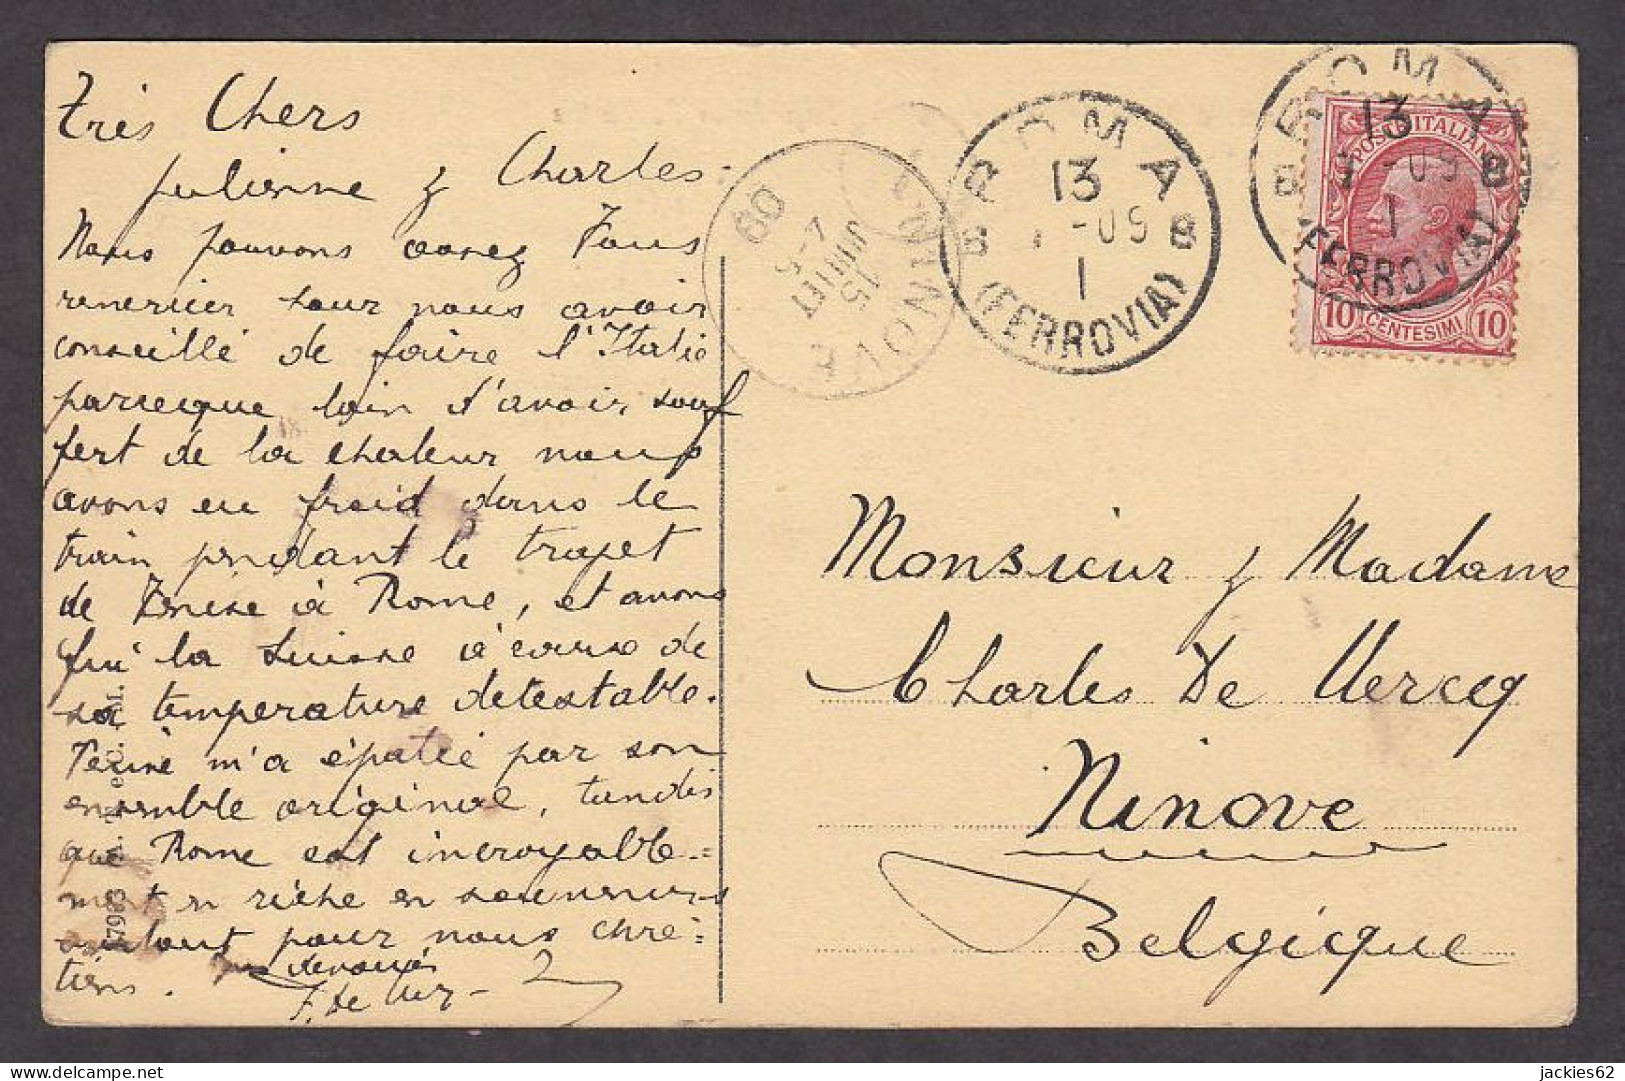 Très Chers
Julienne & Charles
Nous pouvons assez Vous
remercier pour nous avoir
conseillé de faire l'Italie
parceque loin d'avoir souf
fert de la chaleur nous
avons eu froid dans le
train pendant le trajet
de Venise à Rome, et avons
fui la Suisse à cause de
sa température detestable.
Venise m'a épatée par son
ensemble original, tandis
que Rome est incroyable=
ment riche en souvenirs
surtout pour nous chré=
tiens.
devoués
F. De
NINOVE
15
JUILLET
7-S
09
ROMA
13
7-09
1
(FERROVIA)
8 8
ROMA
13
7-09
1
(FERROVIA)
8 8
POSTE ITALIANE
10 CENTESIMI 10
Monsieur & Madame
Charles De Vercq
Ninove
Belgique
jackies62